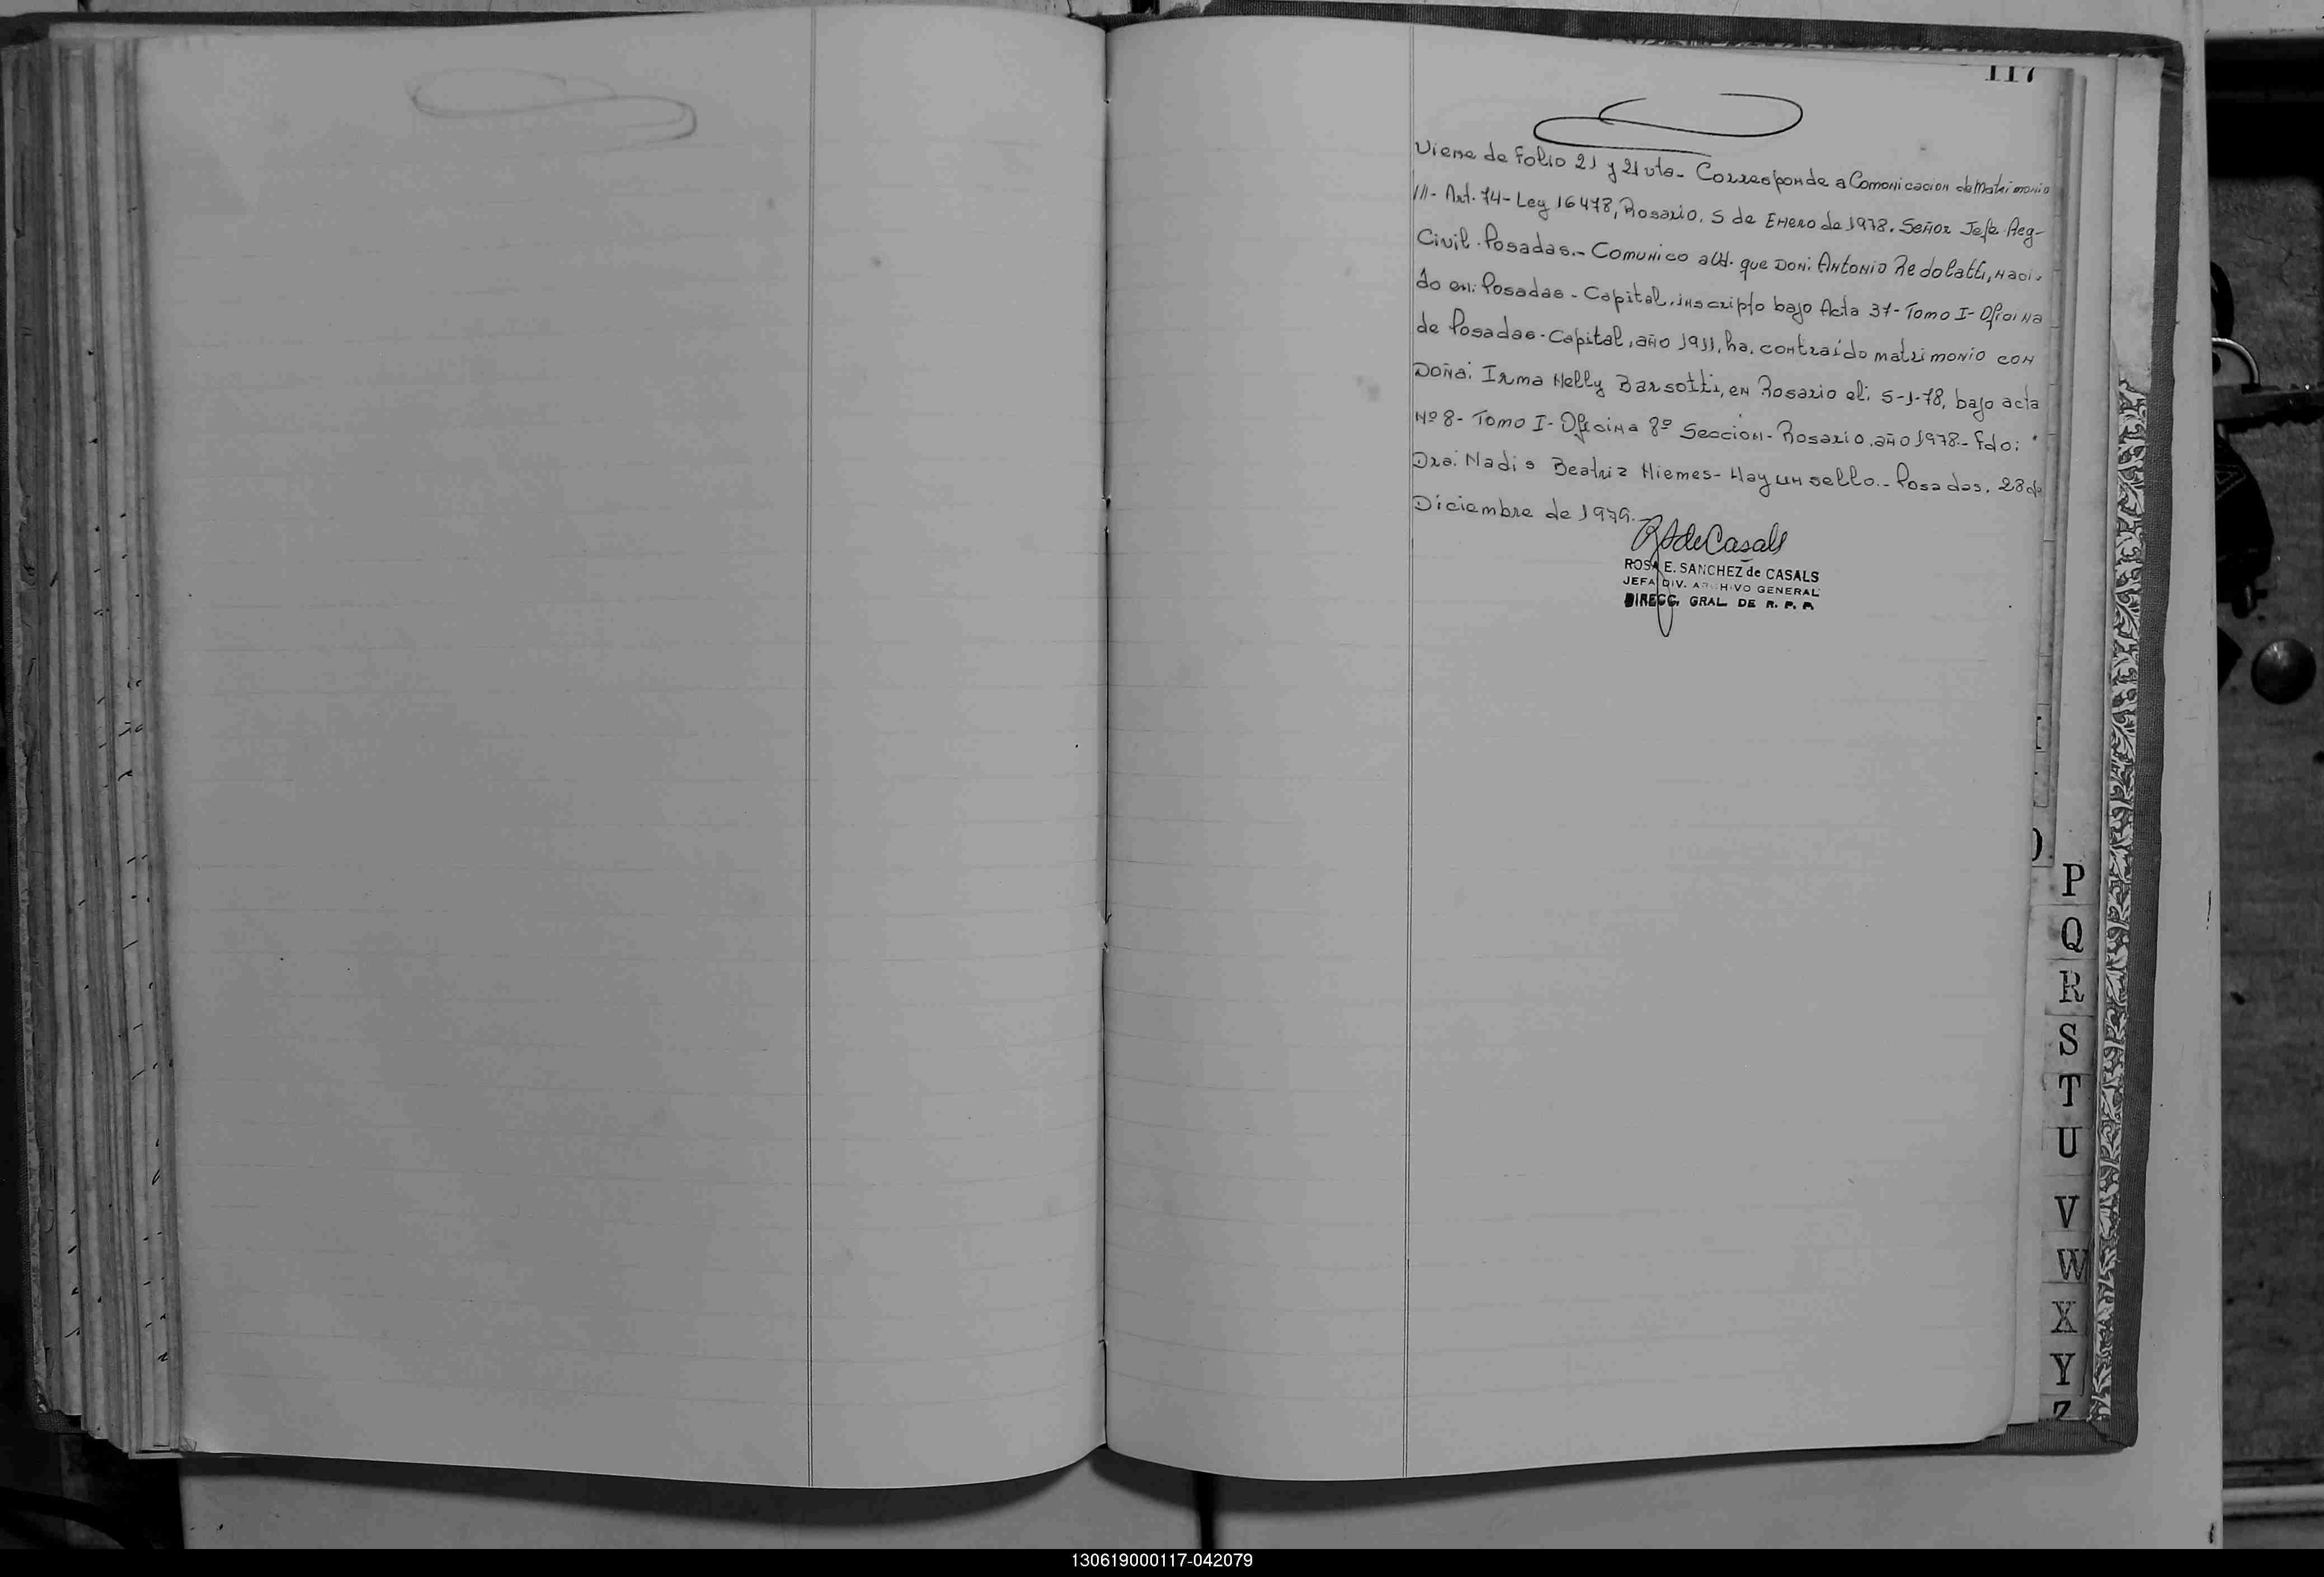 117
Viene de Folio 21 y 21 vta- Corresponde a Comonicacion de Matrimonio
///- Art. 74- Ley 16478, Rosario. 5 de Enero de 1978. Señor Jefe Reg-
Civil. Posadas.- Comunico a Ud. que Don: Antonio Redolatti, naci-
do en: Posadas- Capital, inscripto bajo Acta 37- Tomo I- Oficina
de Posadas- Capital, año 1911, ha, contraído matrimonio con
Doña: Irma Nelly Barsotti, en Rosario el: 5-1-78, bajo acta
Nº 8- Tomo I- Oficina 8º Seccion- Rosario, año 1978.- Fdo:
Dra: Nadis Beatriz Niemes- Hay un sello.- Posadas, 28 de
Diciembre de 1979.-
RSdeCasals
ROSA E. SANCHEZ de CASALS
JEFA DIV. ARCHIVO GENERAL
DIRECC. GRAL. DE R. P. P.
P
Q
R
S
T
U
V
W
X
Y
Z
130619000117-042079